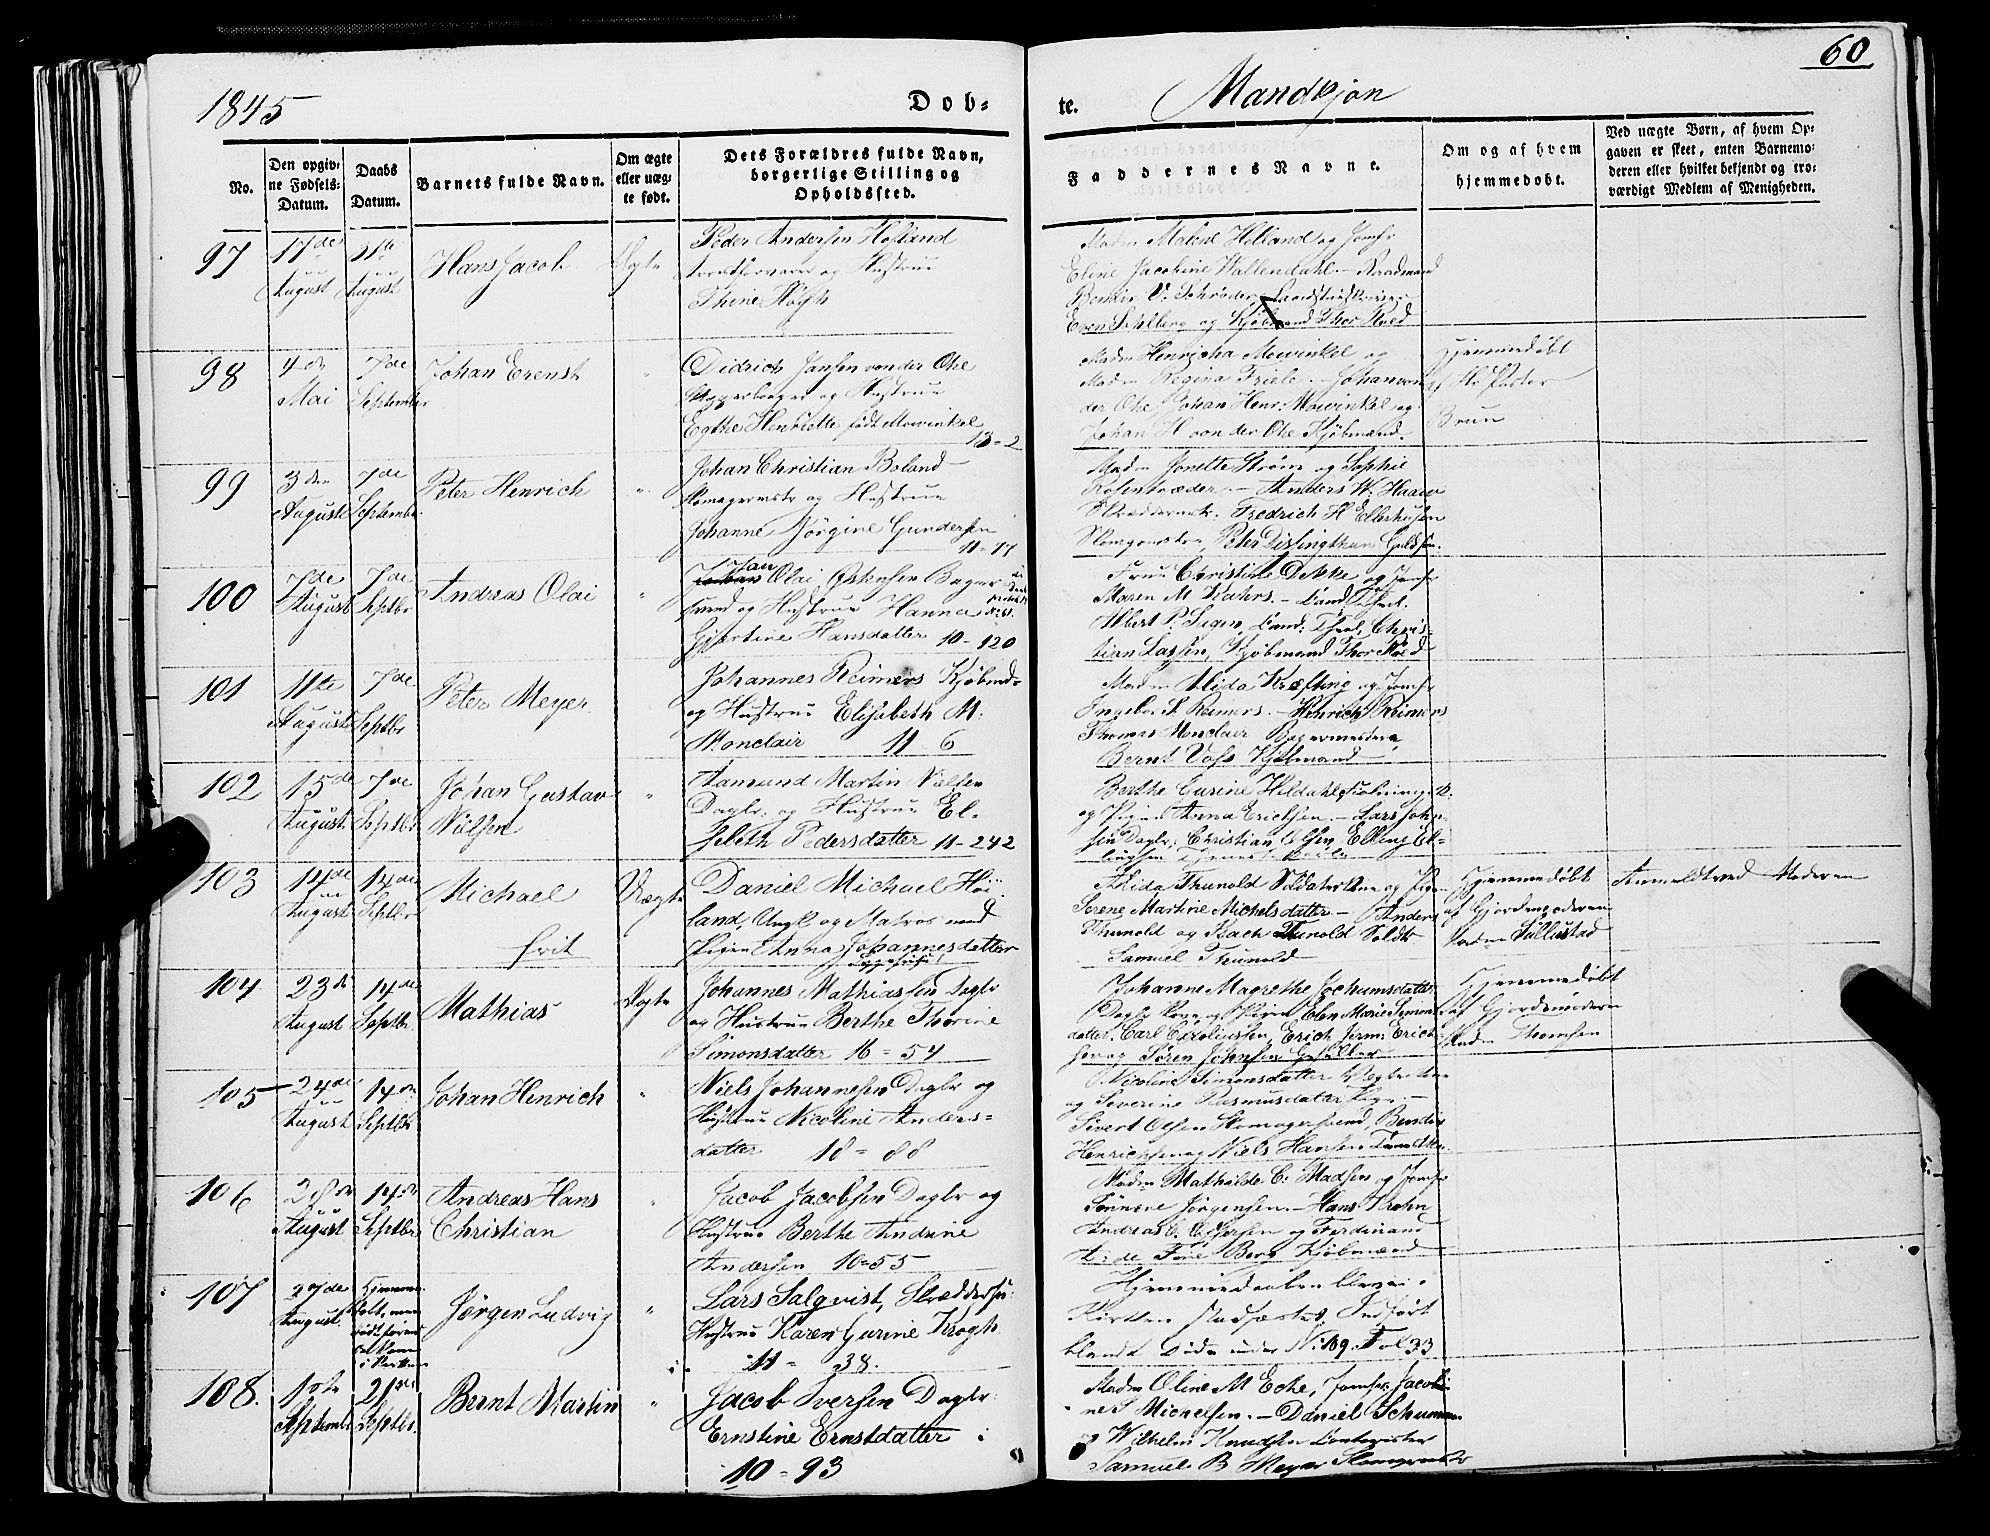 60
1845
Dob=
te.
Mandkjøn
No.
Den opgiv=
ne Fødsels=
Datum.
Daabs
Datum.
Barnets fulde Navn.
Om ægte
eller uæg=
te født.
Dets Forældres fulde Navn,
borgerlige Stilling og
Opholdssted.
Faddernes Navne.
Om og af hvem
hjemmedøbt.
Ved uægte Børn, af hvem Op=
gaven er skeet, enten Barnemo=
deren eller hvilket bekjendt og tro=
værdigt Medlem af Menigheden.
97
17de
August
August
Hans Jacob
Ægte
Peder Andersen Hofland
og Hustrue
Thine Høgh
Madm Malene Helland og Jomfr
Eline Jacobine Wallendahl.
V. Schrøder,
Even Sehlberg og Kjøbmand Thor Roed
98
4de
Mai
7de
September
Johan Erenst
"
Didrich Jansen von der Ohe
og Hustrue
Egthe Henriette født Mowinkel
13=2
Madm Henricha Mowinkel og
Madm Regina Friele. Johan von
der Ohe Johan Henr: Mowinkel og
Johan H von der Ohe Kjøbmænd.
Hjemmedøbt
af Hr Pastor
Brun
99
3den
August
7de
September
Peter Henrich
"
Johan Christian Boland
Skomagermstr og Hustrue
Johanne Jørgine Gundersen
11=17
Madm Jonette Strøm og Sophie
Rosentræder. Anders W. Haaw
Fredrich H Ellerhusen
100
7de
August
7de
Septbr
Andreas Olai
"
Johan Olai Østensen Bager
svend og Hustrue Hanna
Gjertine Hansdatter 10=120
Frue Christine Dekke og Jomfr
Maren M Wahrs.
Albert P. Segen, Cand: Theol. Chris=
tian Lassen, Kjøbmand Thor Roed
101
11te
August
7de
Septbr
Peter Meyer
Johannes Reimers Kjøbmd=
og Hustrue Elisabeth M.
Monclair 11=6
Madm Alida Kræfting og Jomfr
Ingebor S Reimers. Henrich Reimers
Thomas Monclair Bagermestere
Bernt Voss Kjøbmand
102
15de
August
7de
Septbr
Johan Gustav
Nilsen
"
Aamund Martin Nilsen
Dagkr. og Hustrue El=
sebeth Pedersdatter 11=242
Berthe Gurine Heldahl
og Pigen Anna Ericksen. Lars John=
sen Dagkr. Christian Olsen, Elling El=
lingsen
103
14de
August
14de
Septbr
Michael
frit
Uægte
Daniel Michael Høi=
land, Ungk og Matros med
Pigen Anna Johannesdatter
Alida Thunold Soldaterkone og Pigen
Serene Martine Michelsdatter Anders
Thunold og Isach Thunold Soldtr
Samuel Thunold
Hjemmedøbt
af Gjordemoderen
Madm Sollestad
Anmeldt ved Moderen
104
23de
August
14de
Septbr
Mathias
Ægte
Johannes Mathiassen Dagkr
og Hustrue Berthe Thorine
Simonsdatter 16=54
Johanne Magrethe Jochumsdatter
Dagkr Kone og Pigen Elen Marie Simons
datter. Carl Corneliussen, Erich Jerm: Erich=
sen og Søren Johnsen Geseller
Hjemmedøbt
af Gjordemoderen
Madm Thomsen
105
24de
August
14de
Septbr
Johan Henrich
"
Niels Johannesen Dagkr og
Hustrue Nicoline Anders=
datter 18=88
Nicoline Simonsdatter
og Severine Rasmusdatter Pige.
Sivert Olsen Skomagersvend, Bendix
Henrichsen og Niels Hansen
106
28de
August
14de
Septbr
Andreas Hans
Christian
"
Jacob Jacobsen Dagkr og
Hustrue Berthe Andrine
Andersen 10=55
Madm Mathilde C. Madsen og Jomfr
Jørgensen. Hans Krohn
Andreas C. og Ferdinand
Berg Kjøbmænd
107
27de
August
Jørgen Ludvig
"
Lars Salqvist, Skræddersv:
Hustrue Karen Gurine Krogh
11=38.
Hjemmedaaben blev i
Kirken stadfæstet Indført
blandt Døde under No: 109. Fol 33
108.
1ste
September
21de
Septbr.
Bernt Martin
"
Jacob Iversen Dagkr.
Ernstine Ernstdatter
10=93
Madm Oline M Ecke, Jomfr. Jacobi=
ne S Michelsen. Daniel Schuman
og Wilhelm Knudsen
Samuel B Meyer Skomgrmstr